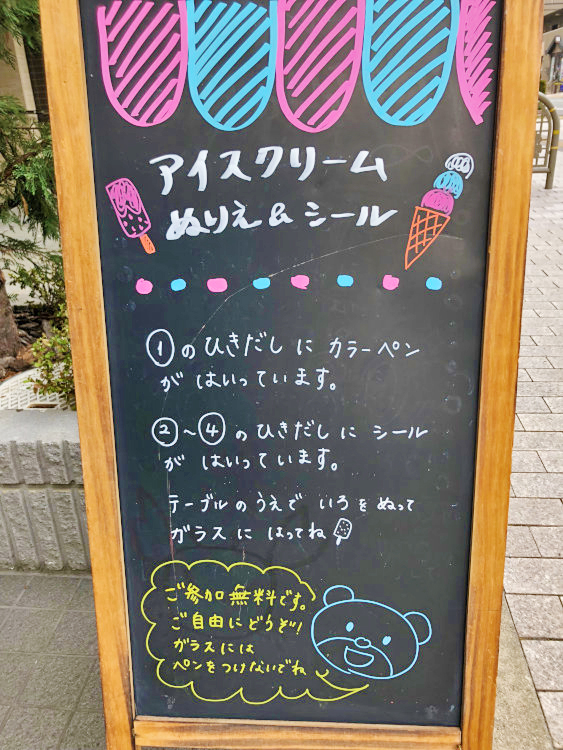 アイスクリーム
ぬりえ&シール
①のひきだしにカラーペン
がはいっています。
②~④のひきだしにシール
がはいっています。
テーブルのうえでいろをぬって
ガラスにはってね
ご参加無料です。
ご自由にどうぞ!
ガラスには
ペンをつけないでね